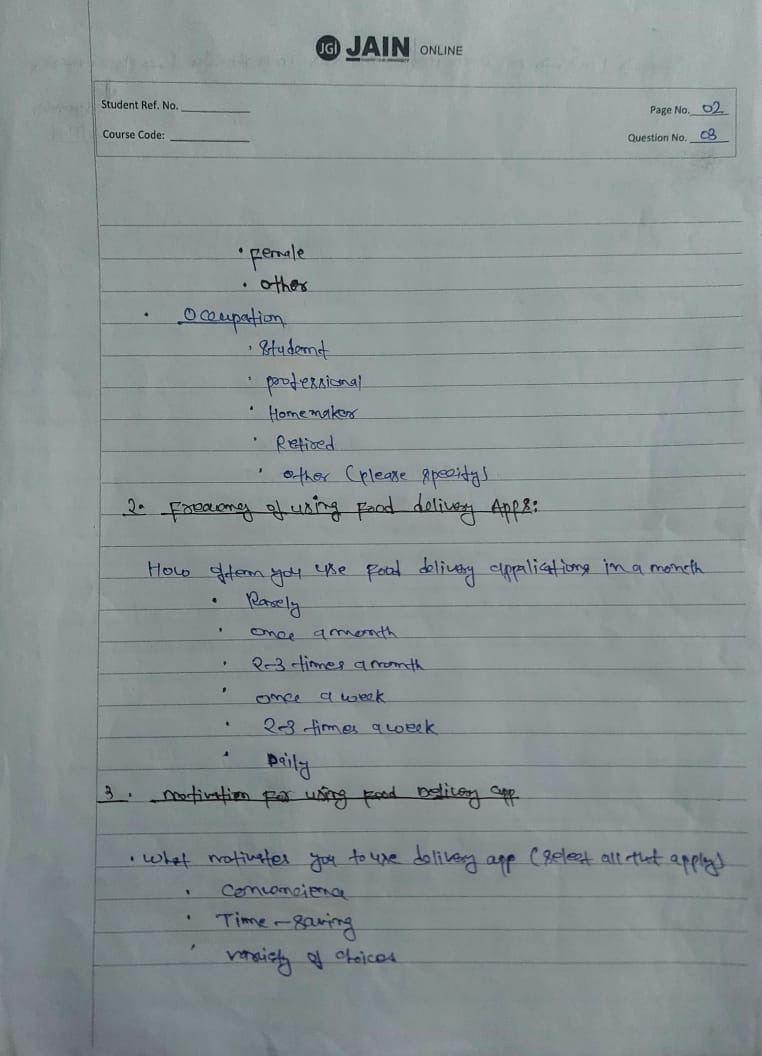 JGI JAIN ONLINE
Student Ref. No. Page No. 02
Course Code: Question No. 03
• female
• other
• Occupation
• Student
• professional
• Homemaker
• Retired
• other (please specify)
2. Frequency of using Food delivery Apps:
How often you use food delivery applications in a month
• Rarely
• once a month
• 2-3 times a month
• once a week
• 2-3 times a week
• Daily
3. motivation for using food Delivery app
• What motivates you to use delivery app (select all that apply)
•
• Time-saving
• variety of choices